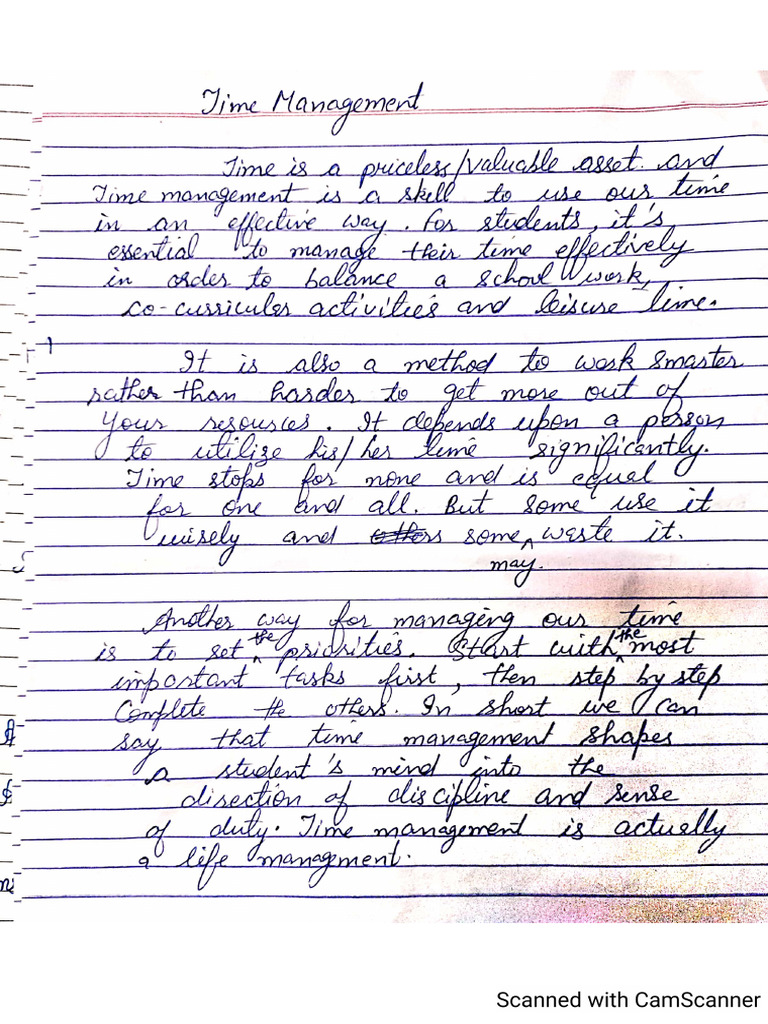 Time Management
Time is a priceless/valuable asset. and
Time management is a skill to use our time
in an effective way. For students, it's
essential to manage their time effectively
in order to balance a school work,
co-curricular activities and leisure time.
It is also a method to work smarter
rather than harder to get more out of
your resources. It depends upon a person
to utilize his/her time significantly.
Time stops for none and is equal
for one and all. But some use it
wisely and others some may waste it.
Another way for managing our time
is to set the priorities. Start with the most
important tasks first, then step by step
Complete the others. In short we can
say that time management shapes
a student's mind into the
direction of discipline and sense
of duty. Time management is actually
a life management.
Scanned with CamScanner